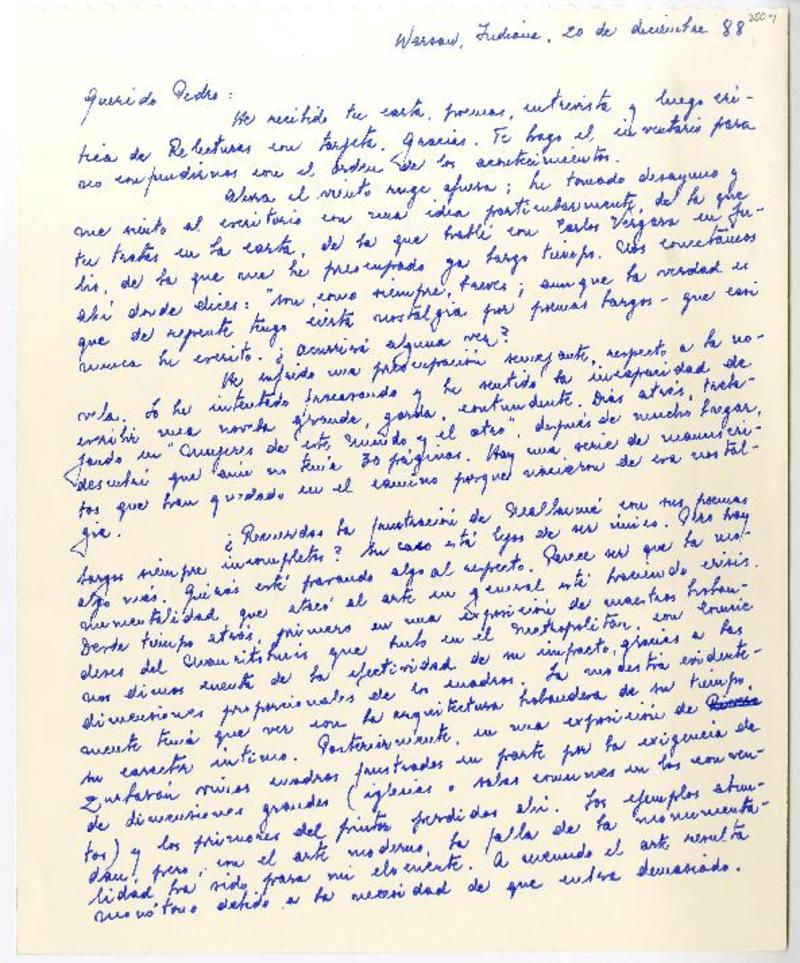 350-1
Warsaw, Indiana, 20 de diciembre 88
Querido Pedro:
He recibido tu carta, poemas, entrevista y luego crí-
tica de Relecturas con tarjeta. Gracias. Te hago el inventario para
no confundirnos con el orden de los acontecimientos.
Ahora el viento ruge afuera; he tomado desayuno y
me siento al escritorio con una idea particularmente, de la que
tu tratas en la carta, de la que hablé con Carlos Vergara en Ju-
lio, de la que me he preocupado ya largo tiempo. Nos conectamos
ahí donde dices: "son, como siempre, breves; aunque la verdad es
que de repente tengo cierta nostalgia por poemas largos - que casi
nunca he escrito. ¿Ocurrirá alguna vez?
He sufrido una preocupación semejante, respecto a la no-
vela. Lo he intentado fracasando y he sentido la incapacidad de
escribir una novela grande, gorda, contundente. Días atrás, traba-
jando en "Mujeres de este mundo y el otro", después de mucho bregar,
descubrí que aún no tenía 30 páginas. Hay una serie de manuscri-
tos que han quedado en el camino porque nacieron de esa nostal-
gia.
¿Recuerdas la frustración de Mallarmé con sus poemas
largos siempre incompletos? Su caso está lejos de ser único. Pero hay
algo más. Quizás esté pasando algo al respecto. Parece ser que la mo-
numentalidad que atacó al arte en general está haciendo crisis.
Desde tiempo atrás, primero en una exposición de maestros holan-
deses del Mauritshuis que hubo en el Metropolitan, con Connie
nos dimos cuenta de la efectividad de su impacto, gracias a las
dimensiones proporcionales de los cuadros. La modestia evidente-
mente tenía que ver con la arquitectura holandesa de su tiempo,
su caracter íntimo. Posteriormente, en una exposición de
Zurbarán vimos cuadros frustrados en parte por la exigencia de
de dimensiones grandes (iglesias o salas comunes en los conven-
tos) y los primores del pintor perdidos ahí. Los ejemplos abun-
dan, pero, con el arte moderno, la falla de la monumenta-
lidad ha sido para mi elocuente. A menudo el arte resulta
monótono debido a la necesidad de que entera demasiado.